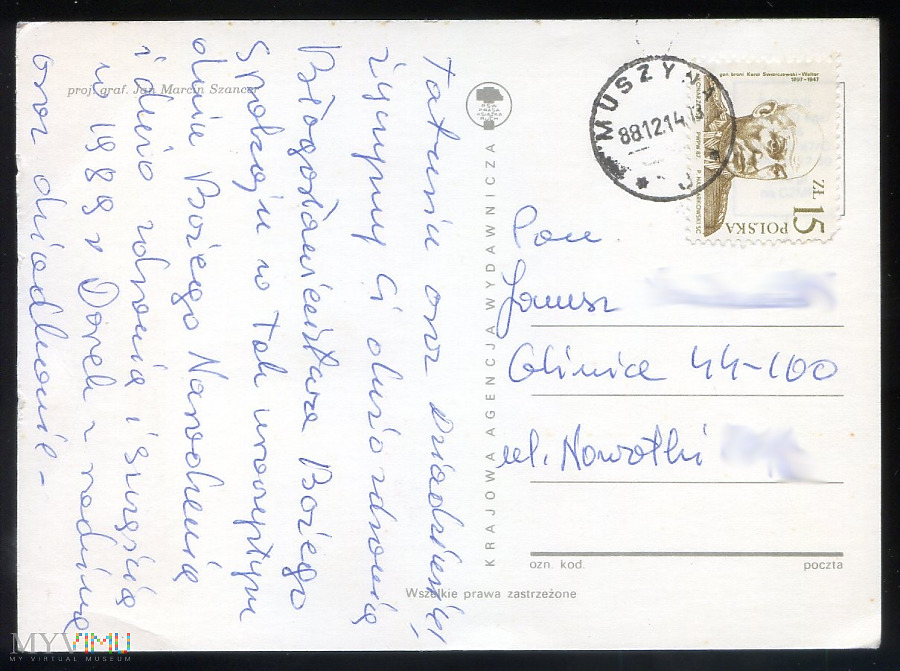 proj. graf. Jan Marcin Szancer
Tatusiu oraz Dziadziusiu,
życzymy Ci dużo zdrowia
Błogosławieństwa Bożego
Spokoju w Tak uroczystym
dniu Bożego Narodzenia
i dużo zdrowia i szczęścia
w 1989 r z rodziną
oraz
KRAJOWA AGENCJA WYDAWNICZA
RSW
PRASA
KSIĄŻKA
RUCH
MUSZYNA
88.12.14.13
gen. broni Karol Świerczewski-Walter
1897-1947
PWPW 87
ZŁ 15
POLSKA
Pan
Janusz
Gliwice 44-100
ul. Nowotki
ozn. kod.
poczta
Wszelkie prawa zastrzeżone
MYVIMU
MY VIRTUAL MUSEUM